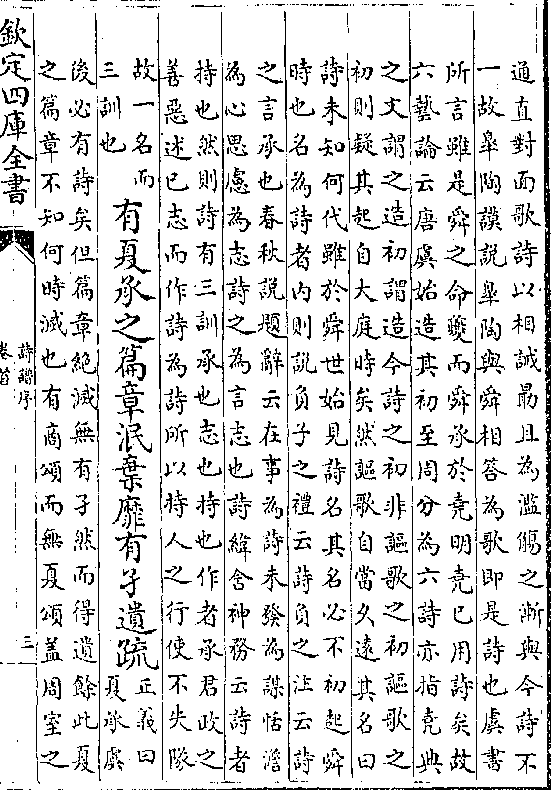 通直對面歌詩以相誡勗且為濫觴之漸與今詩不
一故臯陶謨說臯陶與舜相答為歌即是詩也虞書
所言雖是舜之命夔而舜承於堯明堯已用詩矣故
六藝論云唐虞始造其初至周分為六詩亦指堯典
之文謂之造初謂造今詩之初非謳歌之初謳歌之
初則疑其起自大庭時矣然謳歌自當久逺其名曰
詩未知何代雖於舜世始見詩名其名必不初起舜
時也名為詩者内則說負子之禮云詩負之注云詩
之言承也春秋說題辭云在事為詩未發為謀恬澹
為心思慮為志詩之為言志也詩緯含神務云詩者
持也然則詩有三訓承也志也持也作者承君政之
善惡述已志而作詩為詩所以持人之行使不失隊
故一名而
三訓也
有夏承之篇章泯棄靡有孑遺疏
正義曰
夏承虞
後必有詩矣但篇章絶滅無有孑然而得遺餘此夏
之篇章不知何時滅也有商頌而無夏頌盖周室之
欽定四庫全書
詩譜序
卷首
三